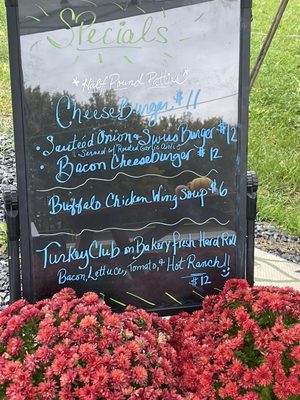 Specials
*Half Pound Patties*
CheeseBurger $11
• Sauteed Onion & Swiss Burger $12
Served w/ Roasted Garlic Aioli
• Bacon Cheeseburger $12
Buffalo Chicken Wing Soup $6
Turkey Club on Bakery fresh Hard Roll
Bacon, Lettuce, Tomato, & Hot Ranch!!
$12